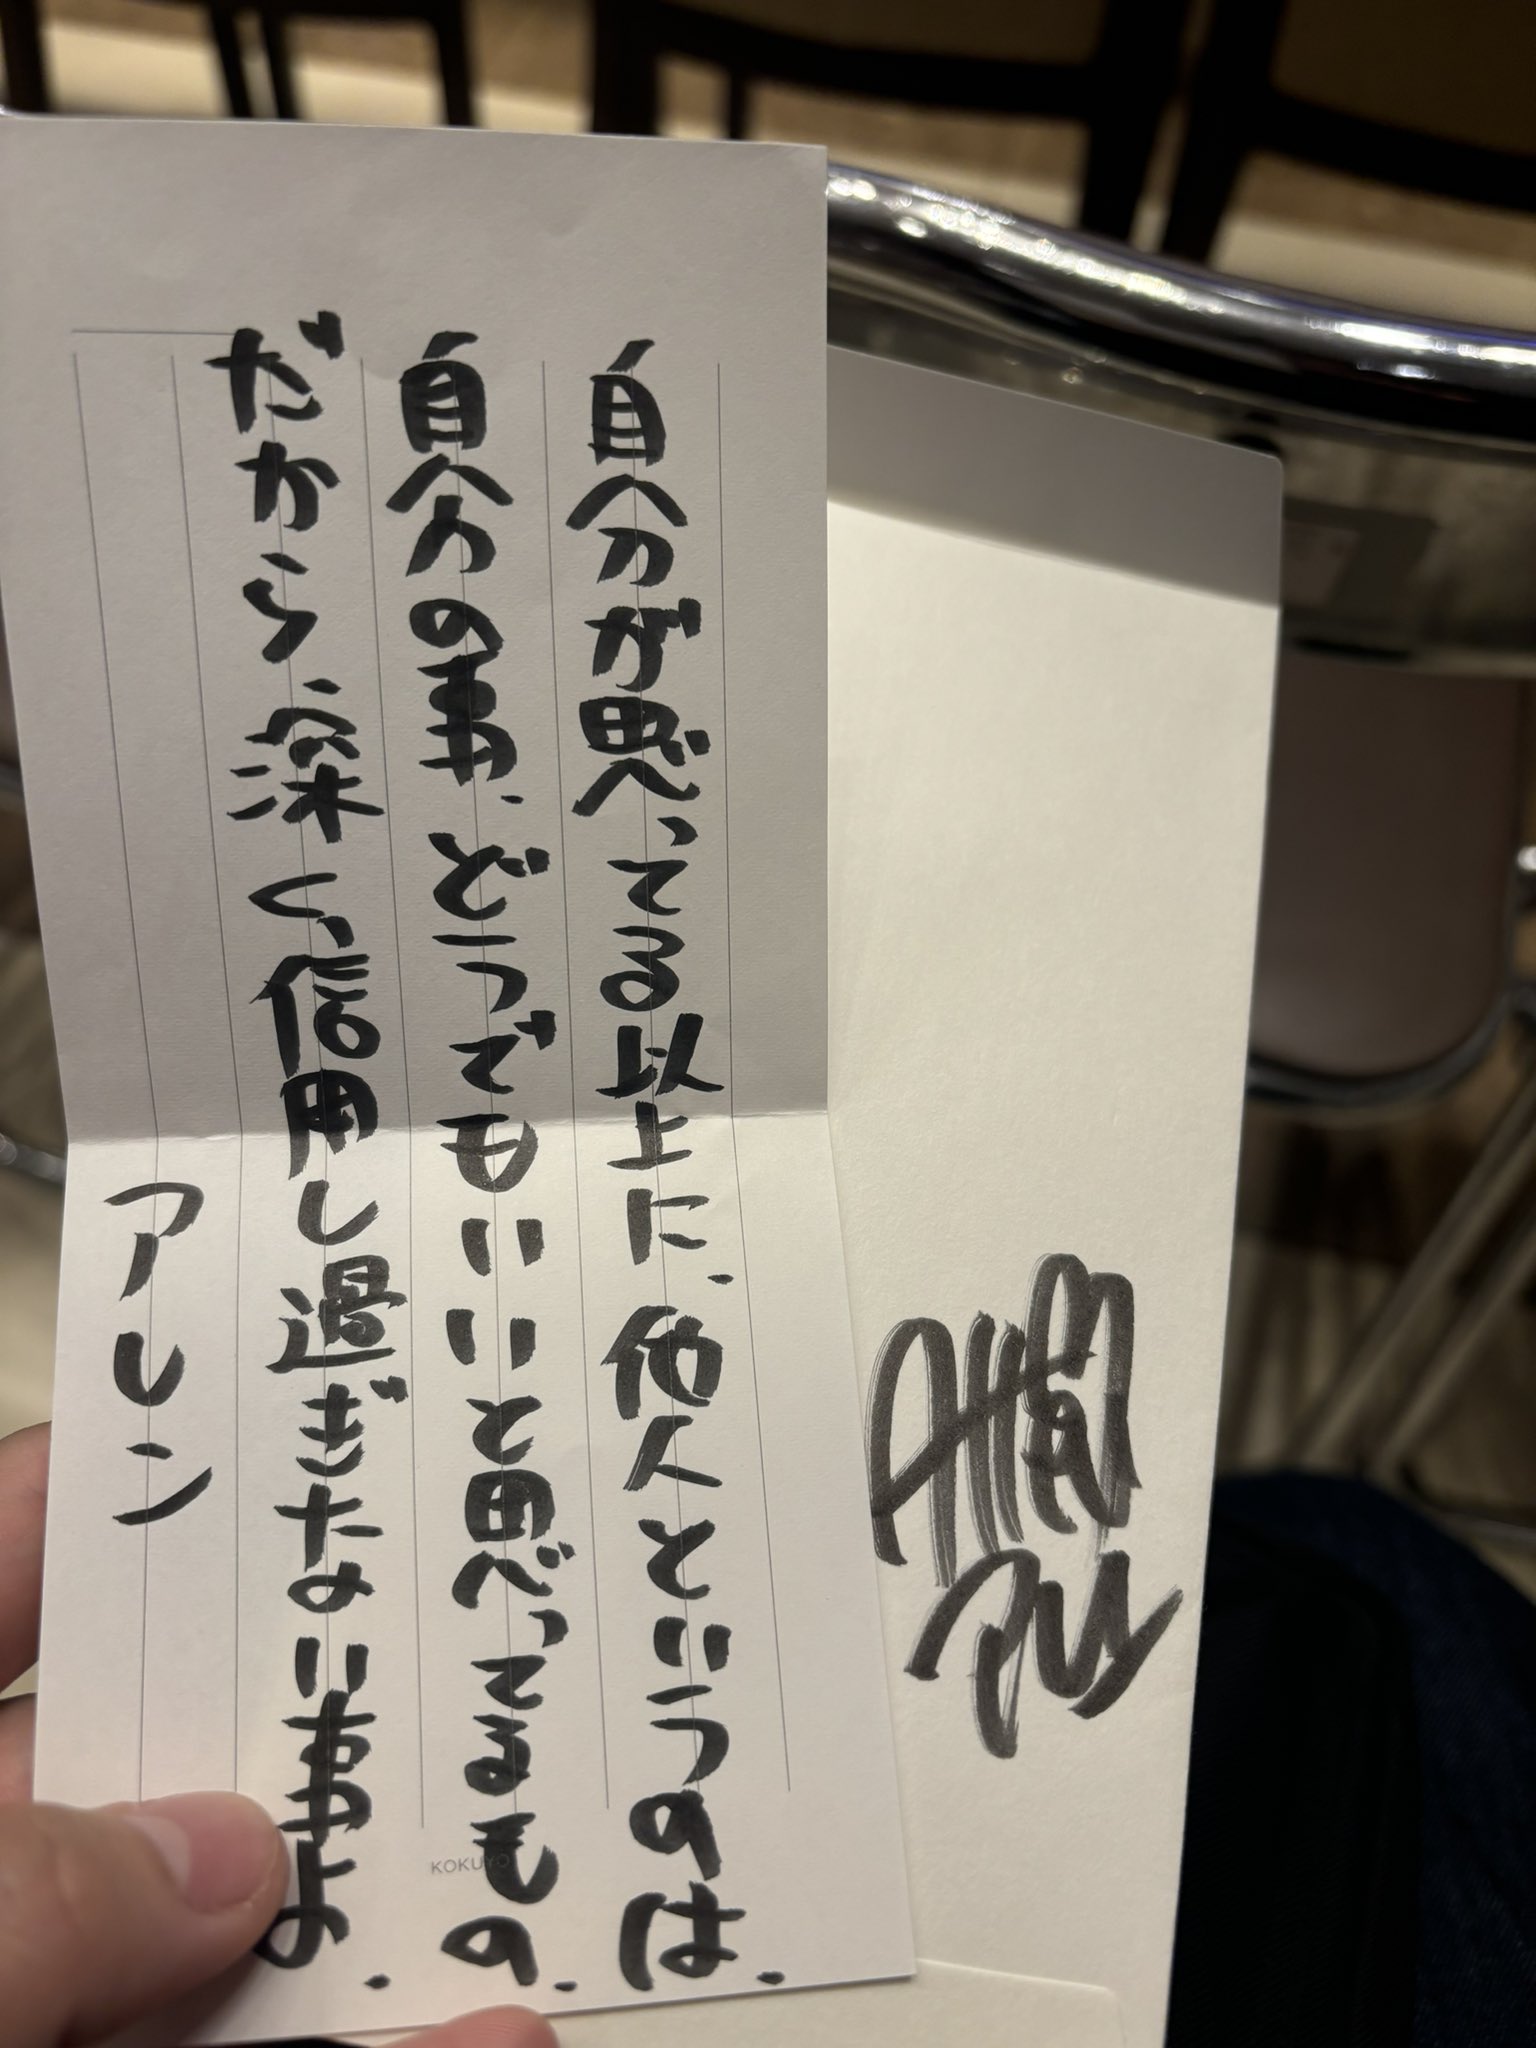 自分が思ってる以上に、他人というのは、
自分の事、どうでもいいと思ってるもの、
だから、深く、信用し過ぎたない事よ、
アレン
KOKUYO